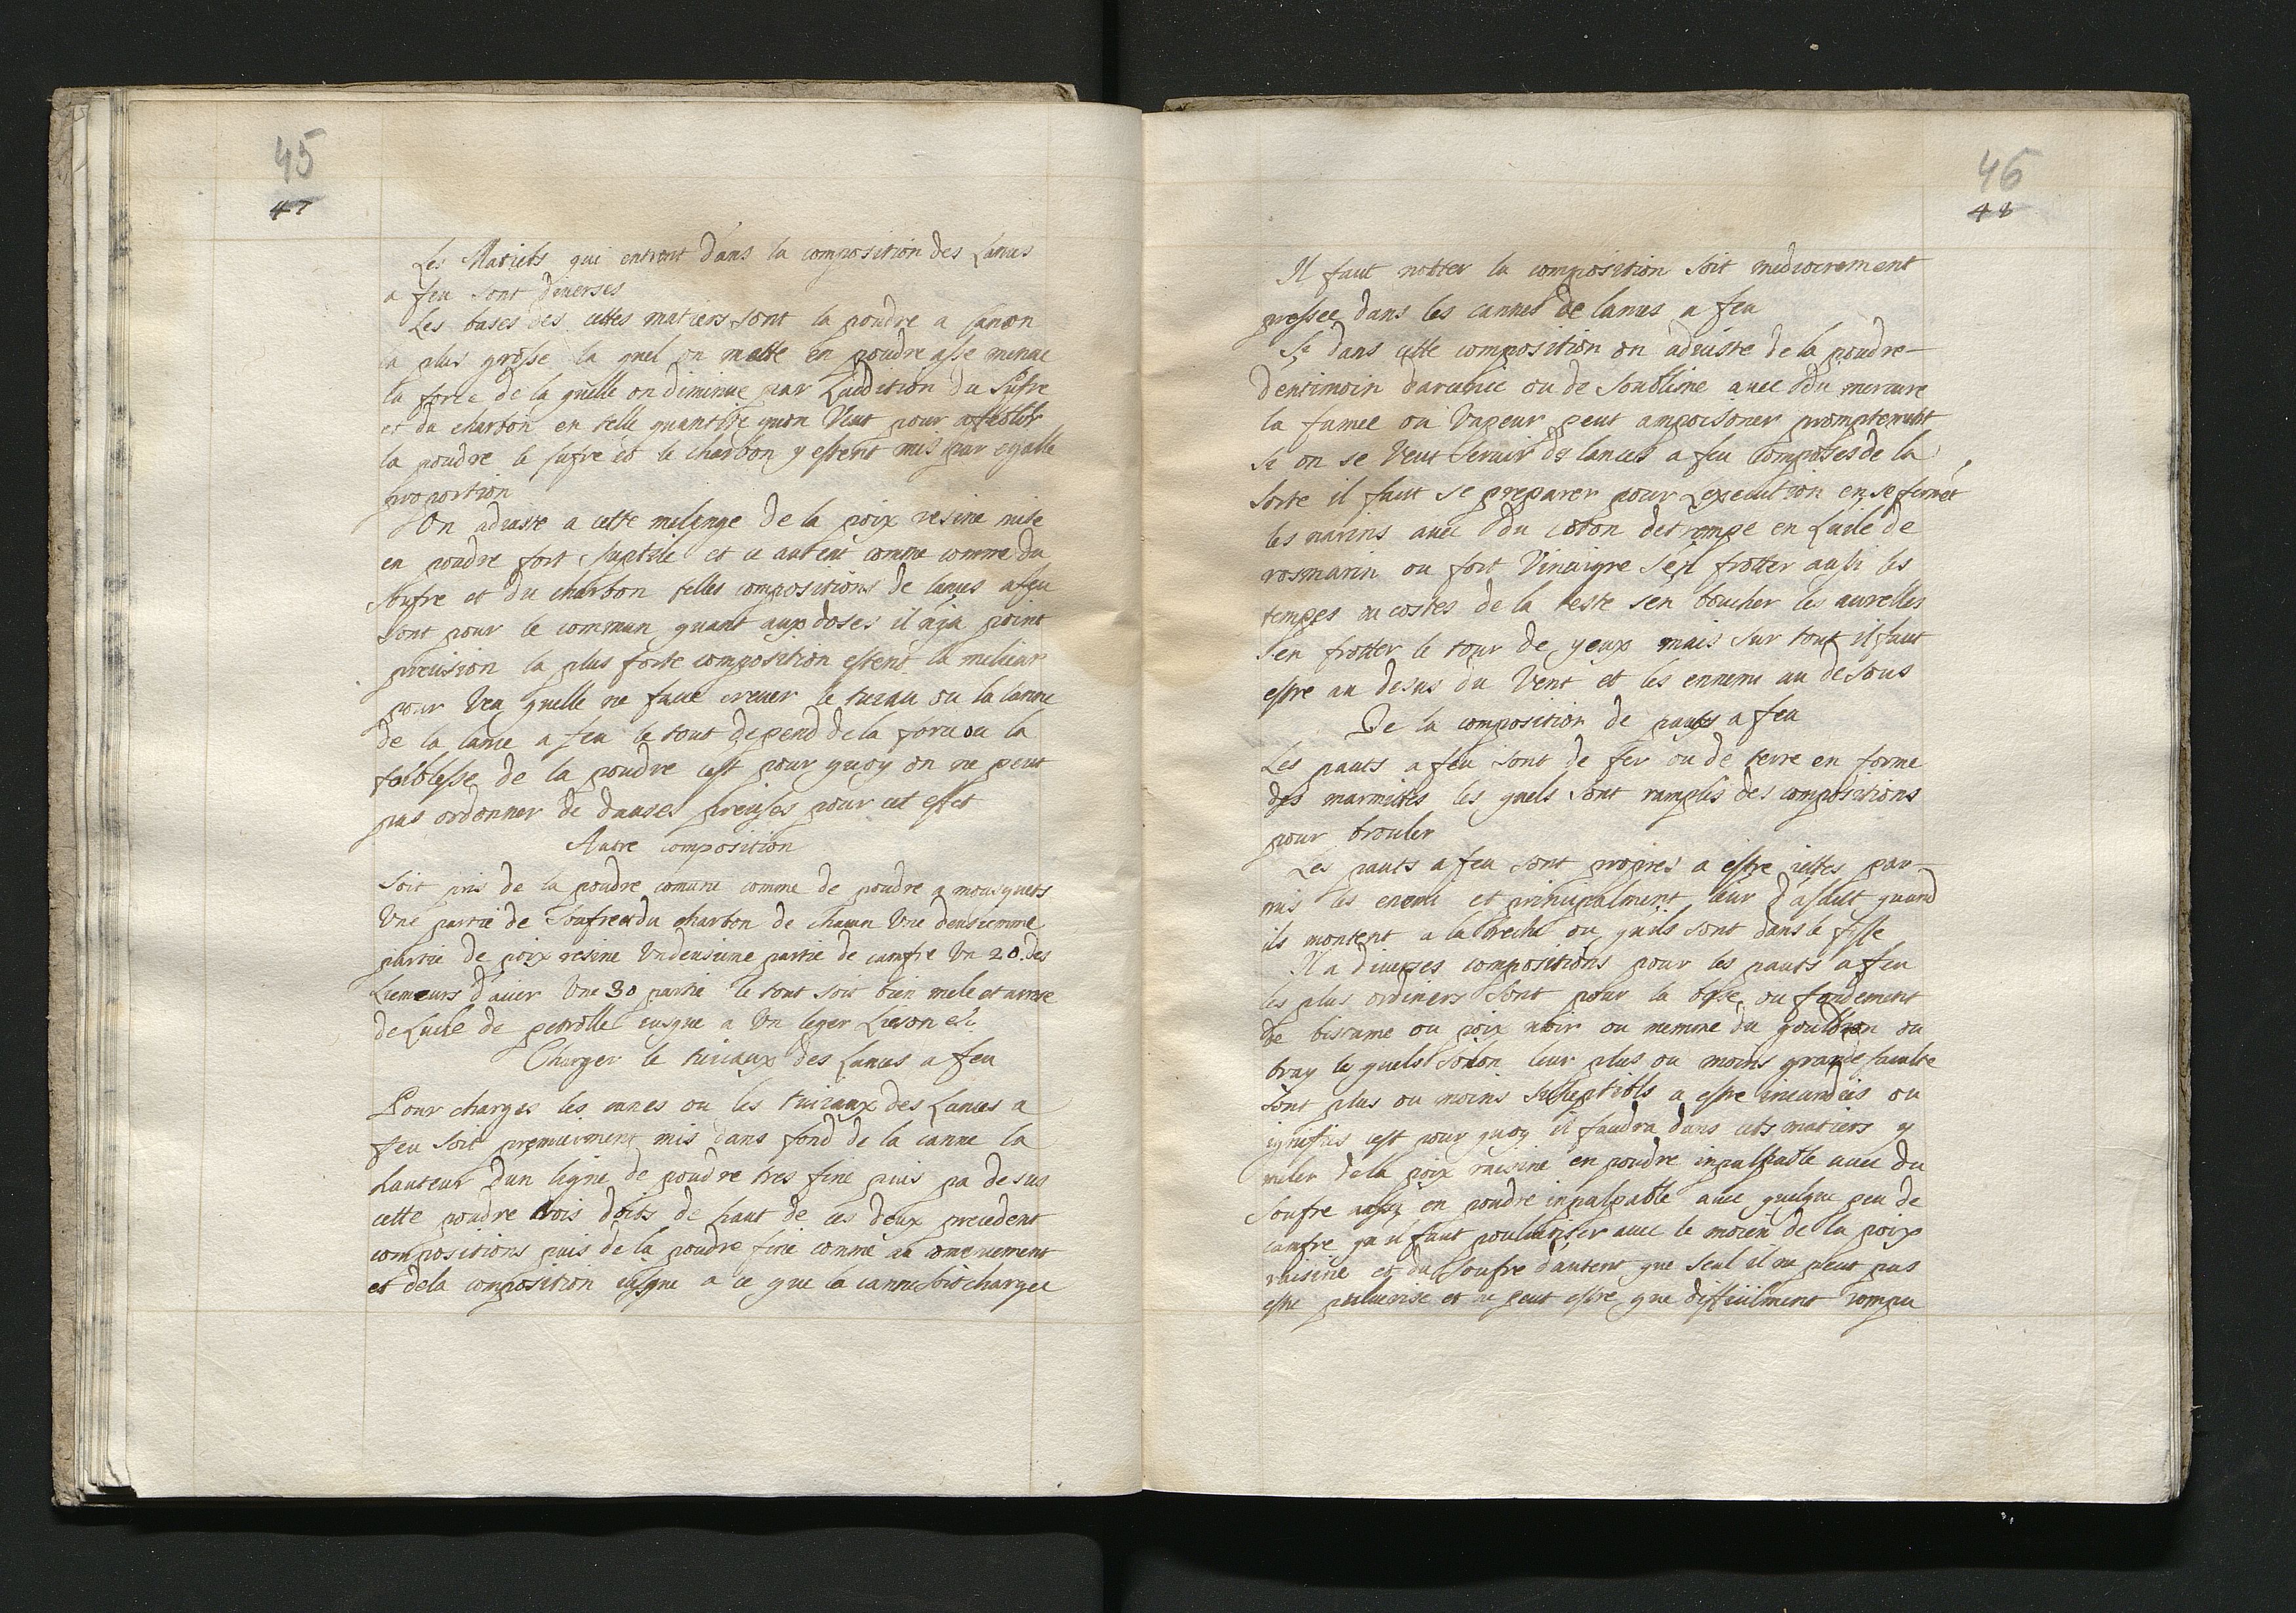 45
47
Les Matiers qui entrent dans la composition des Lances
a feu sont diverses
Les bases des cettes matiers sont la poudre a canon
la plus grosse la quel on mette en poudre asse menue
la force de la quelle on diminue par Laddition du Sufre
et du charbon en telle quantite quon Veut pour afeblir
la poudre le sufre et le charbon y estent mis par egalle
proportion
On adiaste a cette melenge de la poix resine mise
en poudre fort suptile et ce autent comme comme du
soufre et du charbon telles compositions de lances a feu
sont pour le commun quant aux doses il nja point
precision la plus forte composition estent la melieur
pour Veu quelle ne face crever le tuiau ou la canne
de la lance a feu le tout depend de la force ou la
foiblesse de la poudre cest pour quoy on ne peut
pas ordonner de dauses precises pour cet effet
Autre composition
Soit pris de la poudre comune comme de poudre a mousquets
Une partie de Soufre et du charbon de chacun Une deusiemme
partie de poix resine Un deusieme partie de camfre Un 20. des
Liemeurs d'acier Une 30 partie le tout soit bien mele et arrose
de Luile de petrolle iusque a Un leger Lieson etc.
Charger le tuiaux des Lances a feu
Pour charges les cannes ou les tuiaux des Lances a
feu soit premierment mis dans fond de la canne la
hauteur dun ligne de poudre tres fine puis pa desus
cette poudre trois doits de haut de ces deux precedent
compositions puis de la poudre fine comme au comencement
et de la composition iusque a ce que la canne soit chargee
46
48
Il faut notter la composition soit mediocrement
pressee dans les cannes de lances a feu
Si dans cette composition on adiuste de la poudre
dentimoin darcenic ou de soublime avec du mercure
la fumee ou Vapeur peut ampoisoner promptement
Si on se Veut Servir des lances a feu composes de la
sorte il faut se preparer pour Lexecution en se fermet
les narins avec du coton detrempe en Luile de
rosmarin ou fort Vinaigre sen frotter aussi les
temges ou costes de la teste sen boucher les aurelles
sen frotter le tour de yeux mais sur tout il faut
estre au desus du Vent et les ennemi au desous
De la composition de pauts a feu
Les pauts a feu sont de fer ou de terre en forme
des marmites les quels sont ramplis des compositions
pour brouler
Les pauts a feu sont propres a estre iettes par-
mis les enemi et principalment leur d'asaut quand
ils montent a la breche ou quils sont dans le fosse
Il a diverses compositions pour les pauts a feu
les plus ordiners sont pour la base ou fondement
de bitume ou poix noir ou memme du gouldron ou
bray les quels solon leur plus ou moins grande faculte
sont plus ou moins suseptibls a estre incendies ou
ignifies cest pour quoy il faudra dans cets matiers y
meler de la poix raisine en poudre inpalpable avec du
soufre aussi en poudre inpalpable avec quelque peu de
camfre qu il faut poulveriser avec le moien de la poix
raisine et du soufre d'autent que seul il ne peut pas
estre pulverise et ne peut estre que difficilment rompu